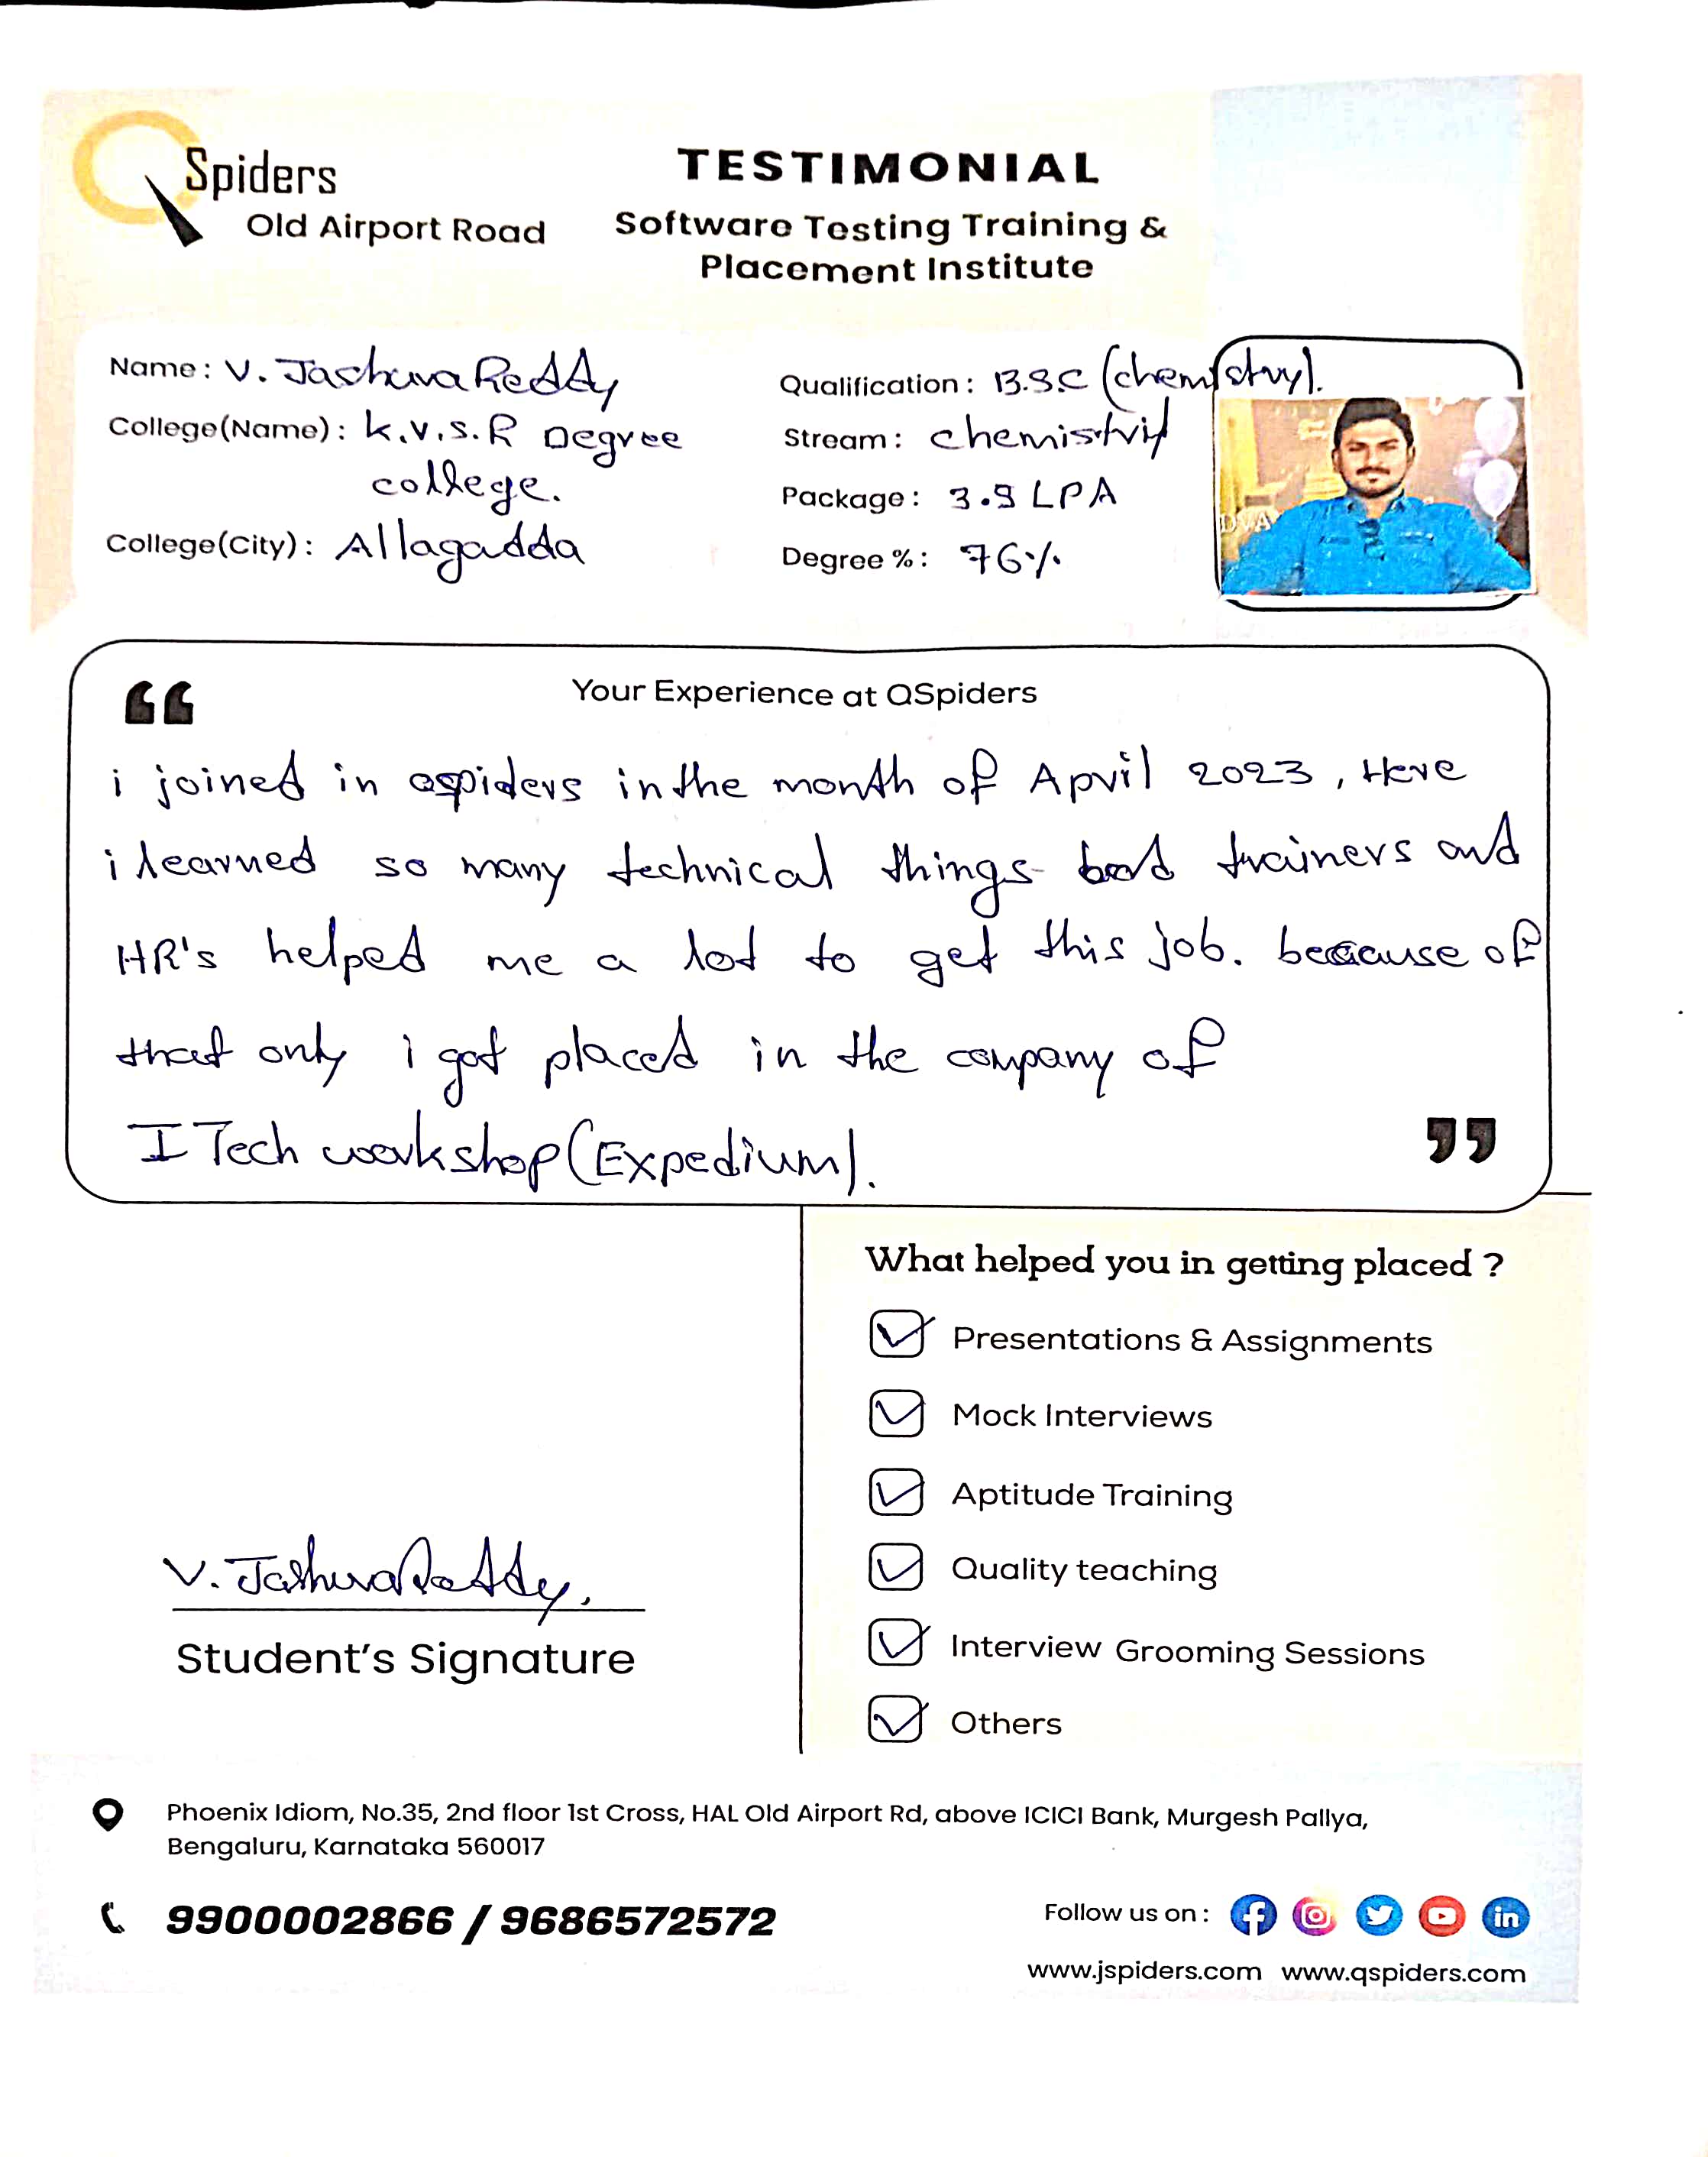 QSpiders
Old Airport Road
TESTIMONIAL
Software Testing Training &
Placement Institute
Name : V. Jashuva Reddy
College(Name) : K.V.S.R Degree
college.
College(City) : Allagadda
Qualification : B.SC (chemistry).
Stream : chemistry
Package : 3.5 LPA
Degree % : 76%
DVA
Your Experience at QSpiders
i joined in qspiders in the month of April 2023, Here
i learned so many technical things trainers and
HR's helped me a lot to get this job. because of
that only i got placed in the company of
I Tech workshop (Expedium).
What helped you in getting placed ?
Presentations & Assignments
Mock Interviews
Aptitude Training
Quality teaching
Interview Grooming Sessions
Others
V. Jashuva Reddy.
Student's Signature
Phoenix Idiom, No.35, 2nd floor 1st Cross, HAL Old Airport Rd, above ICICI Bank, Murgesh Pallya,
Bengaluru, Karnataka 560017
9900002866 / 9686572572
Follow us on :
www.jspiders.com www.qspiders.com